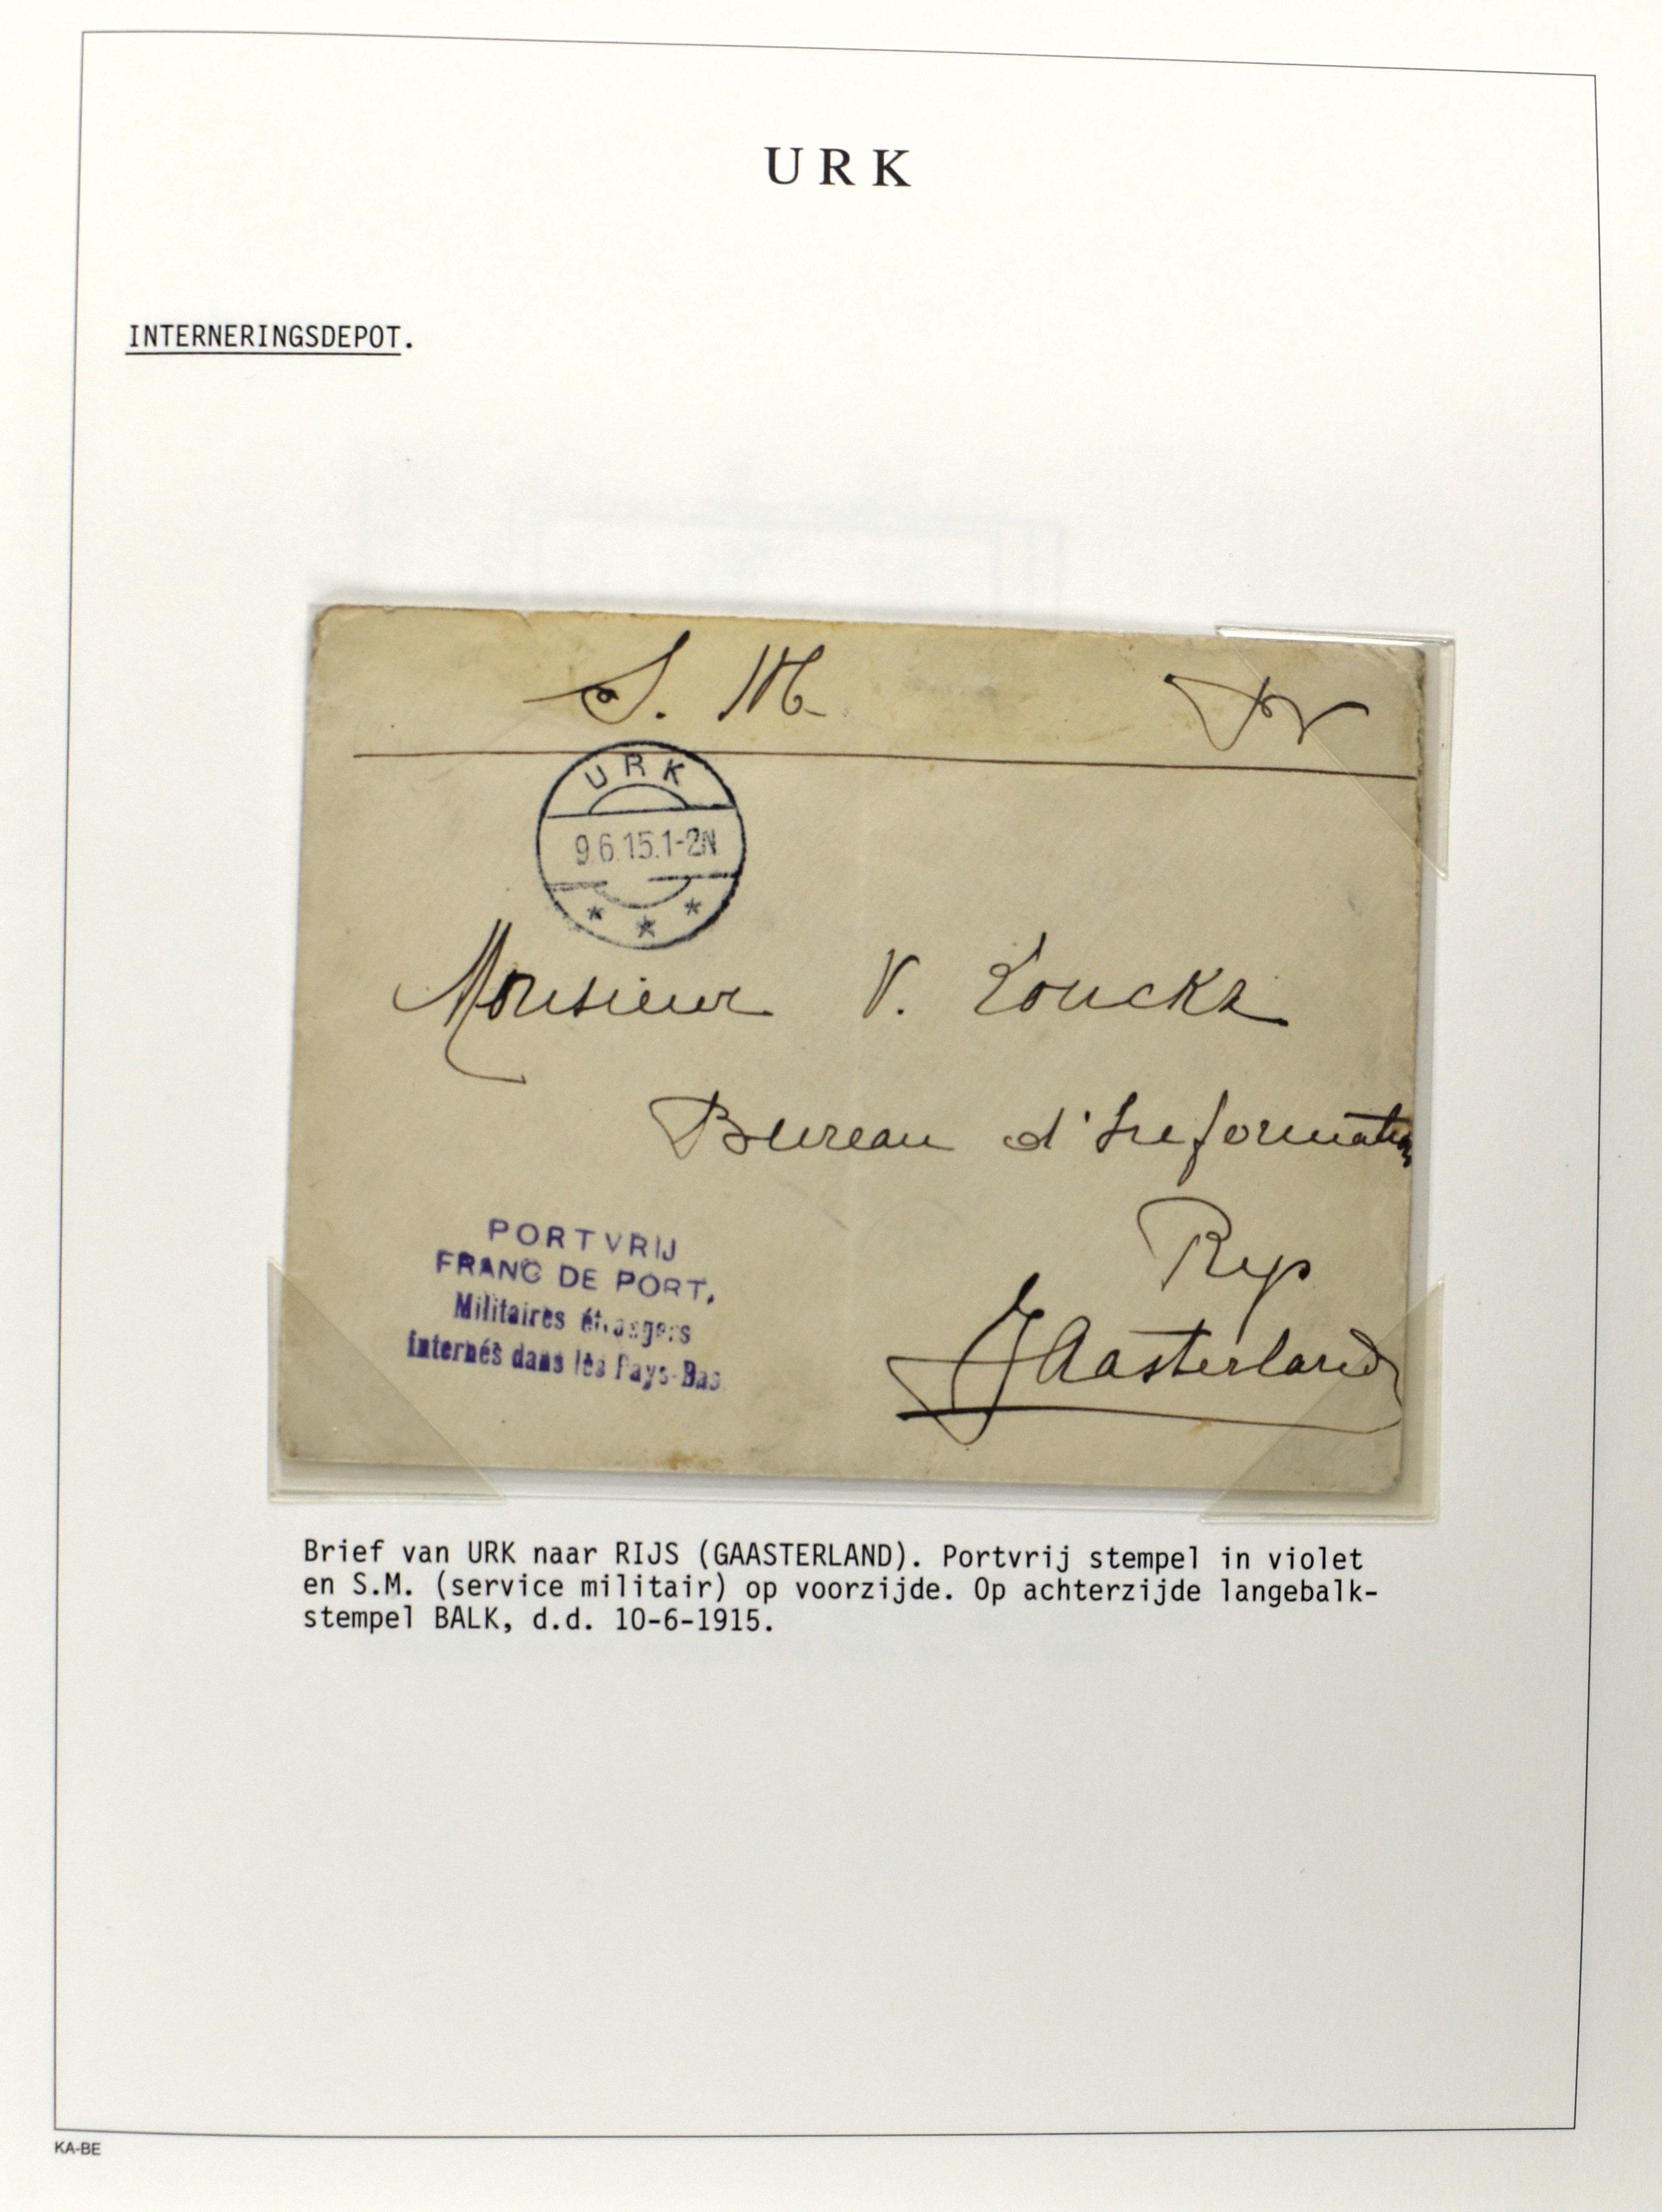 URK
INTERNERINGSDEPOT.
S. M.
URK
9.6.15.1-2N
* * *
Monsieur V. Louckx
Bureau d'Information
Rys
Gaasterland
PORTVRIJ
FRANC DE PORT.
Militaires étrangers
internés dans les Pays-Bas.
Brief van URK naar RIJS (GAASTERLAND). Portvrij stempel in violet
en S.M. (service militair) op voorzijde. Op achterzijde langebalk-
stempel BALK, d.d. 10-6-1915.
KA-BE